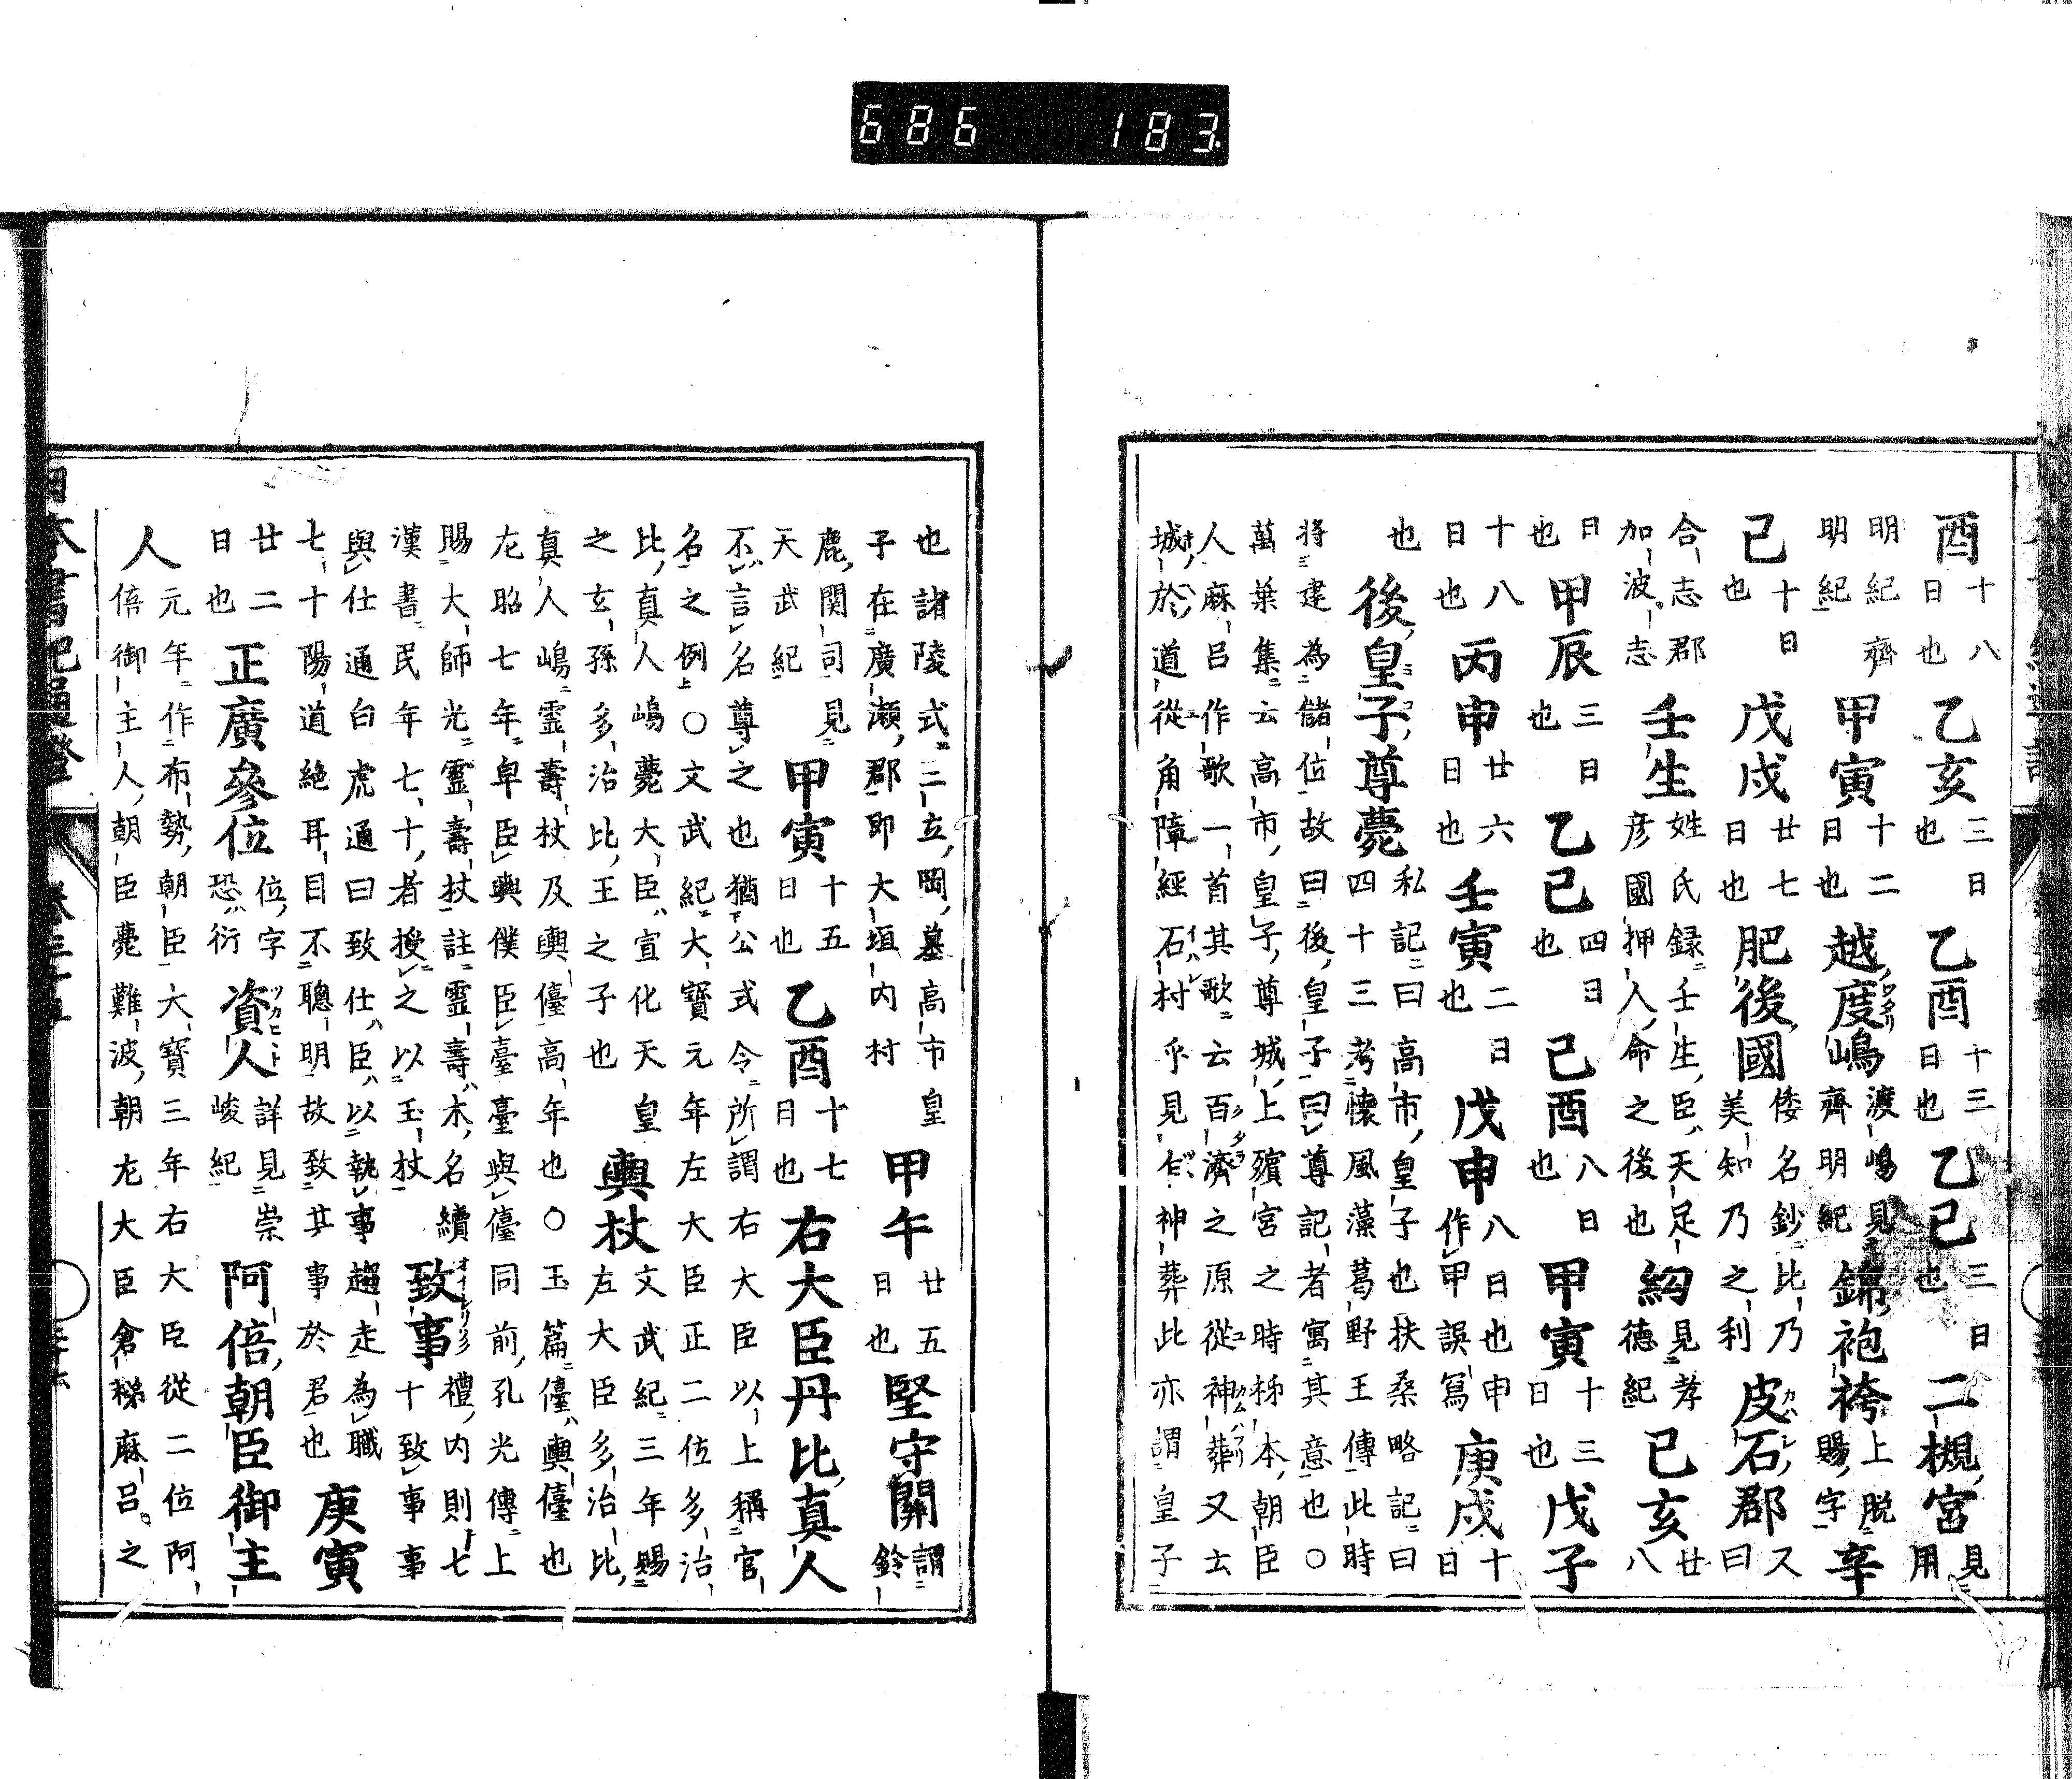 酉十八日也乙亥三日也乙酉十三日也乙巳三日也二槻宮見用
明紀齊明紀甲寅十二日也越度嶋渡嶋見齊明紀錦袍袴上脱賜字辛
己十日也戊戌廿七日也肥後國倭名鈔比乃美知乃之利皮石郡又曰
合志郡加波志壬生姓氏録壬生臣天足彦國押人命之後也絇見孝德紀己亥廿八
日也甲辰三日也乙巳四日也己酉八日也甲寅十三日也戊子
十八日也丙申廿六日也壬寅二日也戊申八日也申作甲誤寫庚戌十日
也後皇子尊薨私記曰高市皇子也扶桑略記曰四十三考懷風藻葛野王傳此時
將建為儲位故曰後皇子曰尊記者寓其意也〇
萬葉集云高市皇子尊城上殯宮之時柹本朝臣
人麻呂作歌一首其歌云百濟之原從神葬又云
城於道從角障經石村乎見乍神葬此亦謂皇子
也諸陵式二立岡墓高市皇子在廣瀬郡即大垣内村甲午廿五日也堅守關謂鈴
鹿關司見天武紀甲寅十五日也乙酉十七日也右大臣丹比真人
不言名尊之也猶公式令所謂右大臣以上稱官
名之例〇文武紀大寶元年左大臣正二位多治
比真人嶋薨大臣宣化天皇之玄孫多治比王之子也輿杖文武紀三年賜左大臣多治比
真人嶋霊壽杖及輿儓高年也〇玉篇儓輿儓也
左昭七年卑臣輿僕臣臺臺與儓同前孔光傳上
賜大師光霊壽杖註霊壽木名續漢書民年七十者授之以玉杖致事禮内則七十致事事
與仕通白虎通曰致仕臣以執事趨走為職七十陽道絶耳目不聰明故致其事於君也庚寅
廿二日也正廣參位位字恐衍資人詳見崇峻紀阿倍朝臣御主
人元年作布勢朝臣大寶三年右大臣從二位阿倍御主人朝臣薨難波朝左大臣倉梯麻呂之
686 183